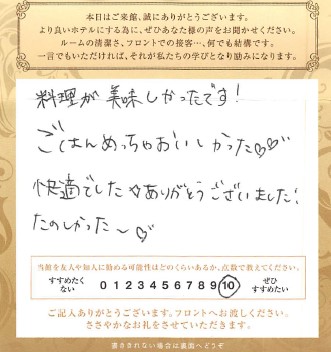 本日はご来館、誠にありがとうございます。
より良いホテルにする為に、ぜひあなた様の声をお聞かせください。
ルームの清潔さ、フロントでの接客…、何でも結構です。
一言でもいただければ、それが私たちの学びとなり励みになります。
料理が美味しかったです!
ごはんめっちゃおいしかった♡♡
快適でした☆ありがとうございました!
たのしかった〜♡
当館を友人や知人に勧める可能性はどのくらいあるか、点数で教えてください。
すすめたくない 0 1 2 3 4 5 6 7 8 9 10 ぜひすすめたい
ご記入ありがとうございます。フロントへお渡しください。
ささやかなお礼をさせていただきます。
書ききれない場合は裏面へどうぞ